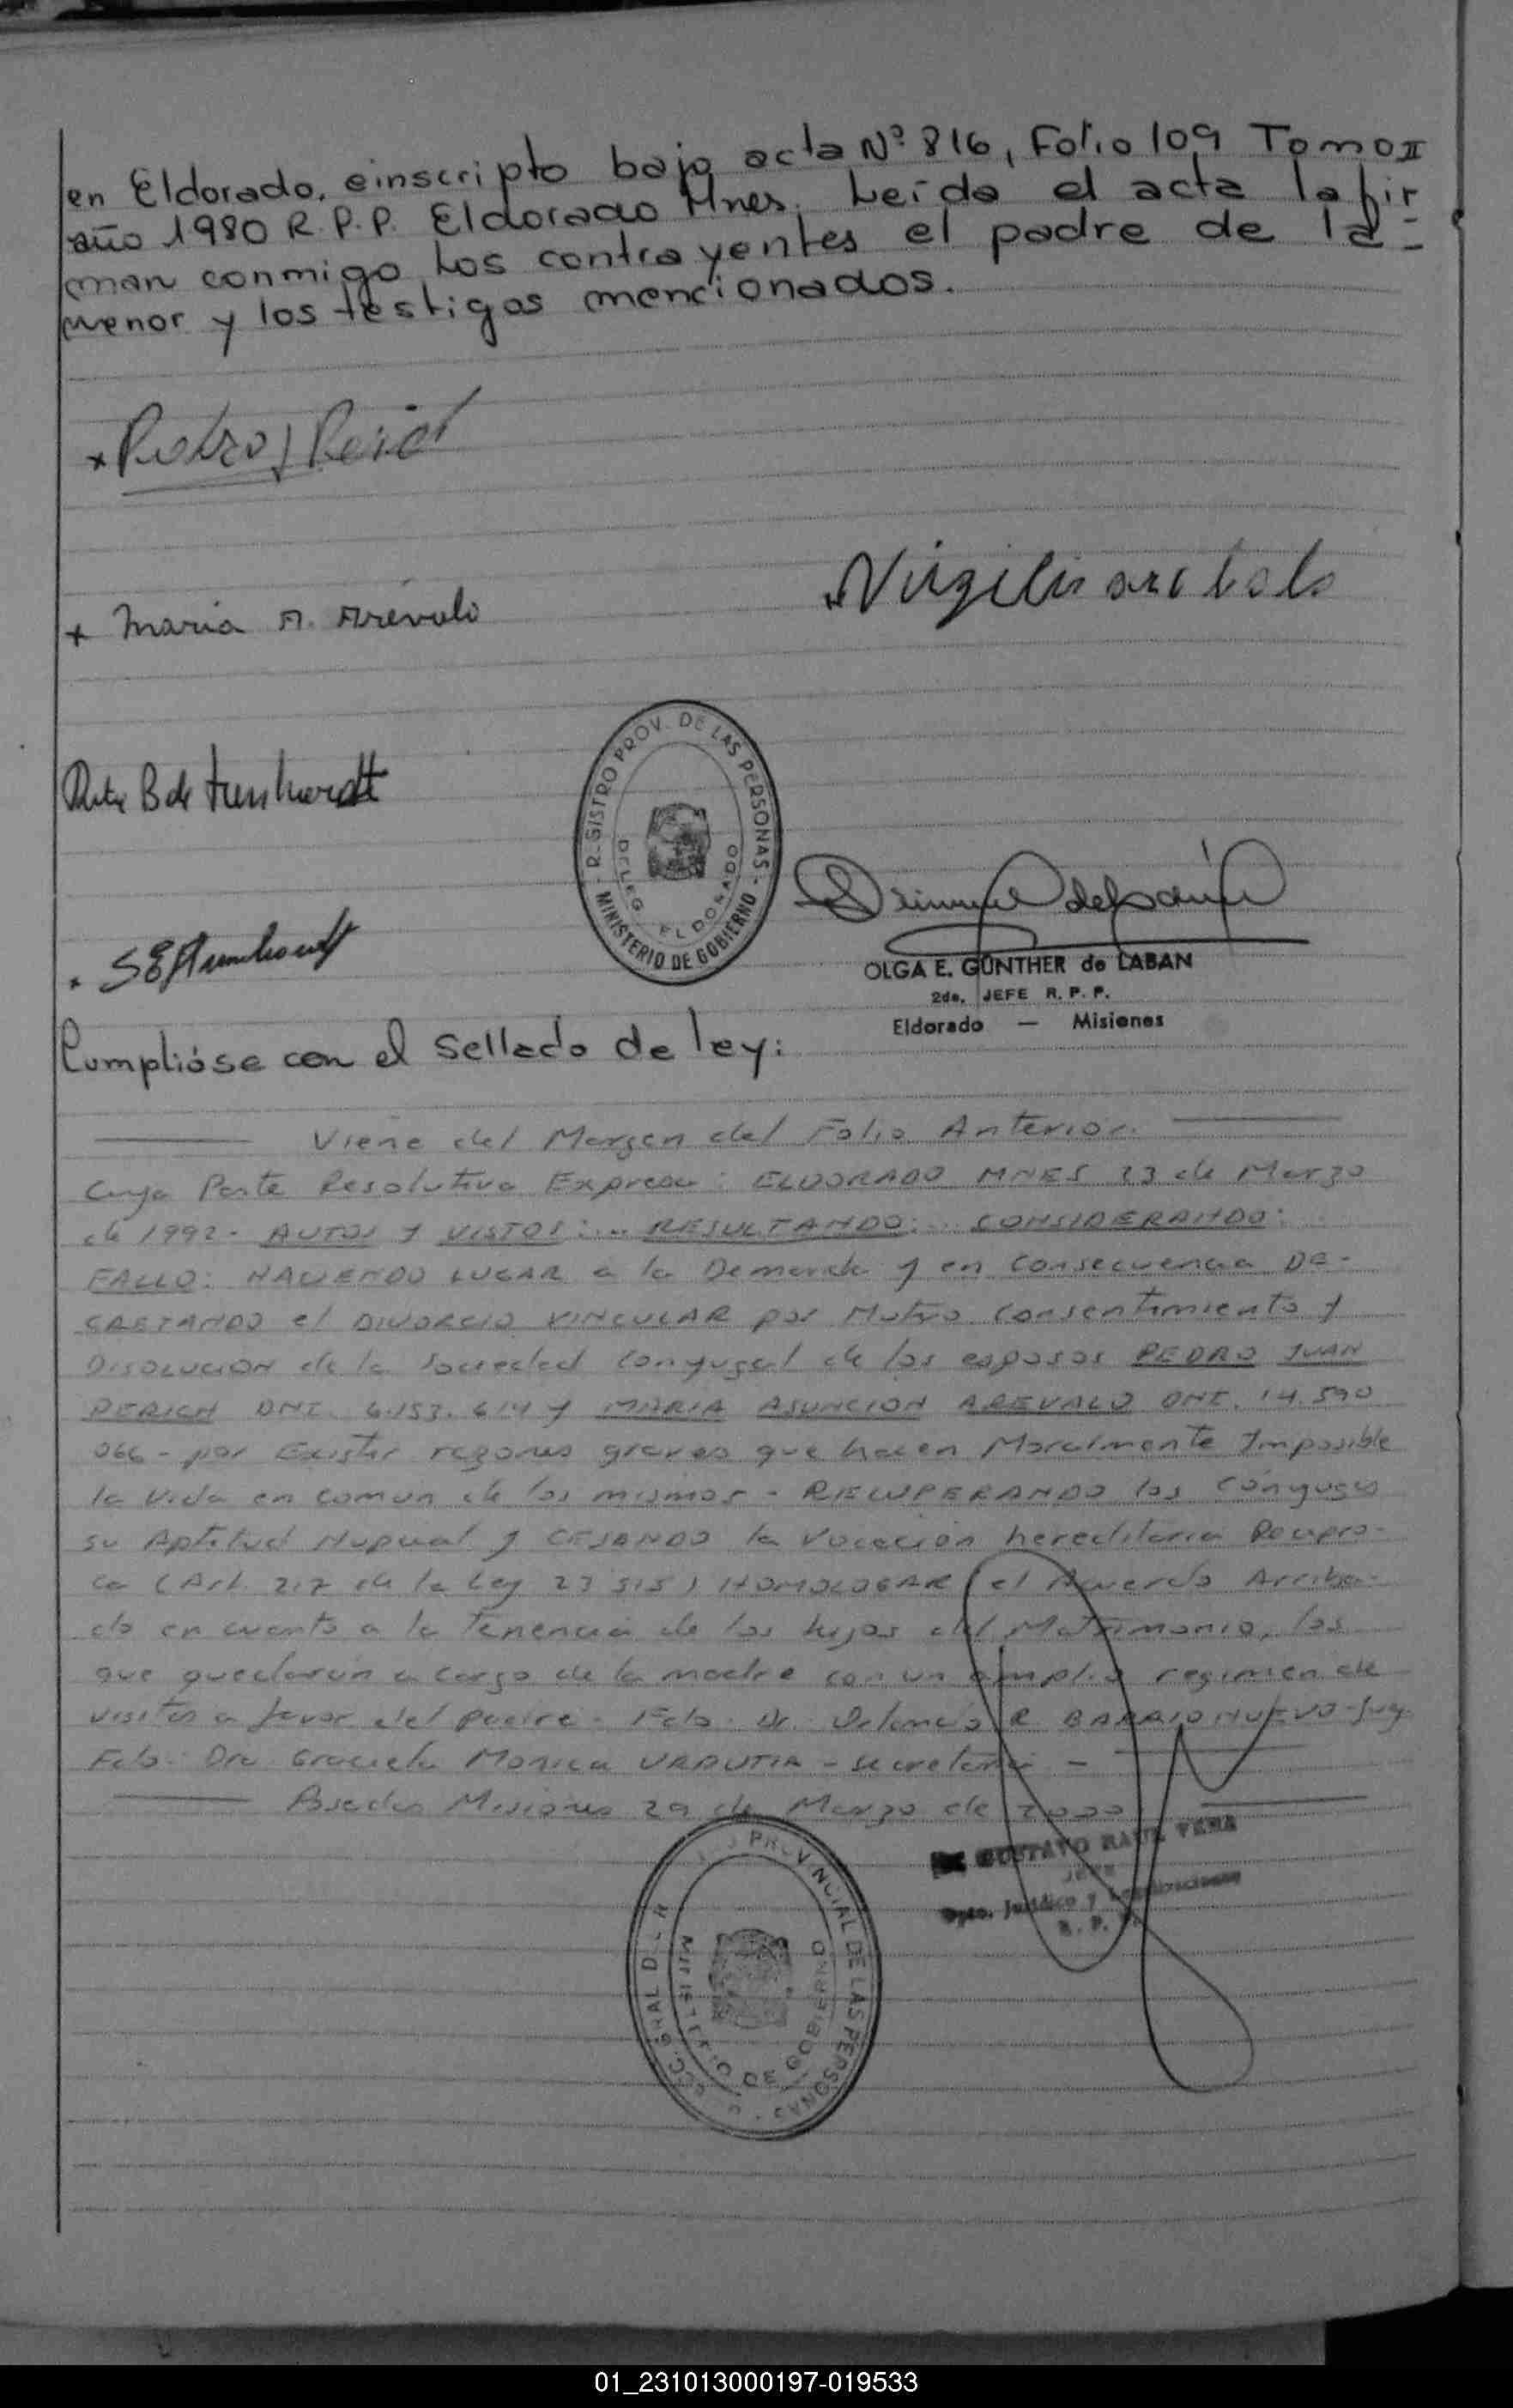 en Eldorado, e inscripto bajo acta Nº 816, Folio 109 Tomo II
año 1980 R.P.P. Eldorado Mnes. Leída el acta la fir
man conmigo Los contrayentes el padre de la -
menor y los testigos mencionados.
x Pedro J Perich
x Maria A. Arévalo
x Virgilio
REGISTRO PROV. DE LAS PERSONAS - MINISTERIO DE GOBIERNO -
DELEG. ELDORADO
OLGA E. GÜNTHER de LABAN
2do. JEFE R. P. P.
Eldorado — Misiones
Cumplióse con el sellado de ley:
Viene del Margen del Folio Anterior.
Cuya Parte Resolutiva Expresa: ELDORADO MNES 23 de Marzo
de 1992- AUTOS Y VISTOS:... RESULTANDO:.. CONSIDERANDO:
FALLO: HACIENDO LUGAR a la Demanda y en consecuencia DE-
CRETANDO el DIVORCIO VINCULAR por Mutuo Consentimiento y
DISOLUCION de la Sociedad Conyugal de los esposos PEDRO JUAN
PERICH DNI. 6.153.614 y MARIA ASUNCION AREVALO DNI. 14.590
066 - por Existir razones graves que hacen Moralmente Imposible
la Vida en comun de los mismos - RECUPERANDO los Cónyuges
su Aptitud Nupcial y CESANDO la Vocación hereditaria Recipro-
ca (Art. 217 de la Ley 23 515) HOMOLOGAR el Acuerdo Arriba-
do en cuanto a la Tenencia de los hijos del Matrimonio, los
que quedarán a cargo de la madre con un amplio regimen de
visitas a favor del padre - Fdo. Dr. R. BARRIONUEVO - Juez
Fdo: Dra Graciela Monica URRUTIA - Secretaria -
Posadas Misiones 29 de Marzo de 2000
GUSTAVO RAUL VERA
JEFE
Dpto. Jurídico y Legalizaciones
R. P. P.
PROVINCIAL DE LAS PERSONAS
MINISTERIO DE GOBIERNO
01_231013000197-019533